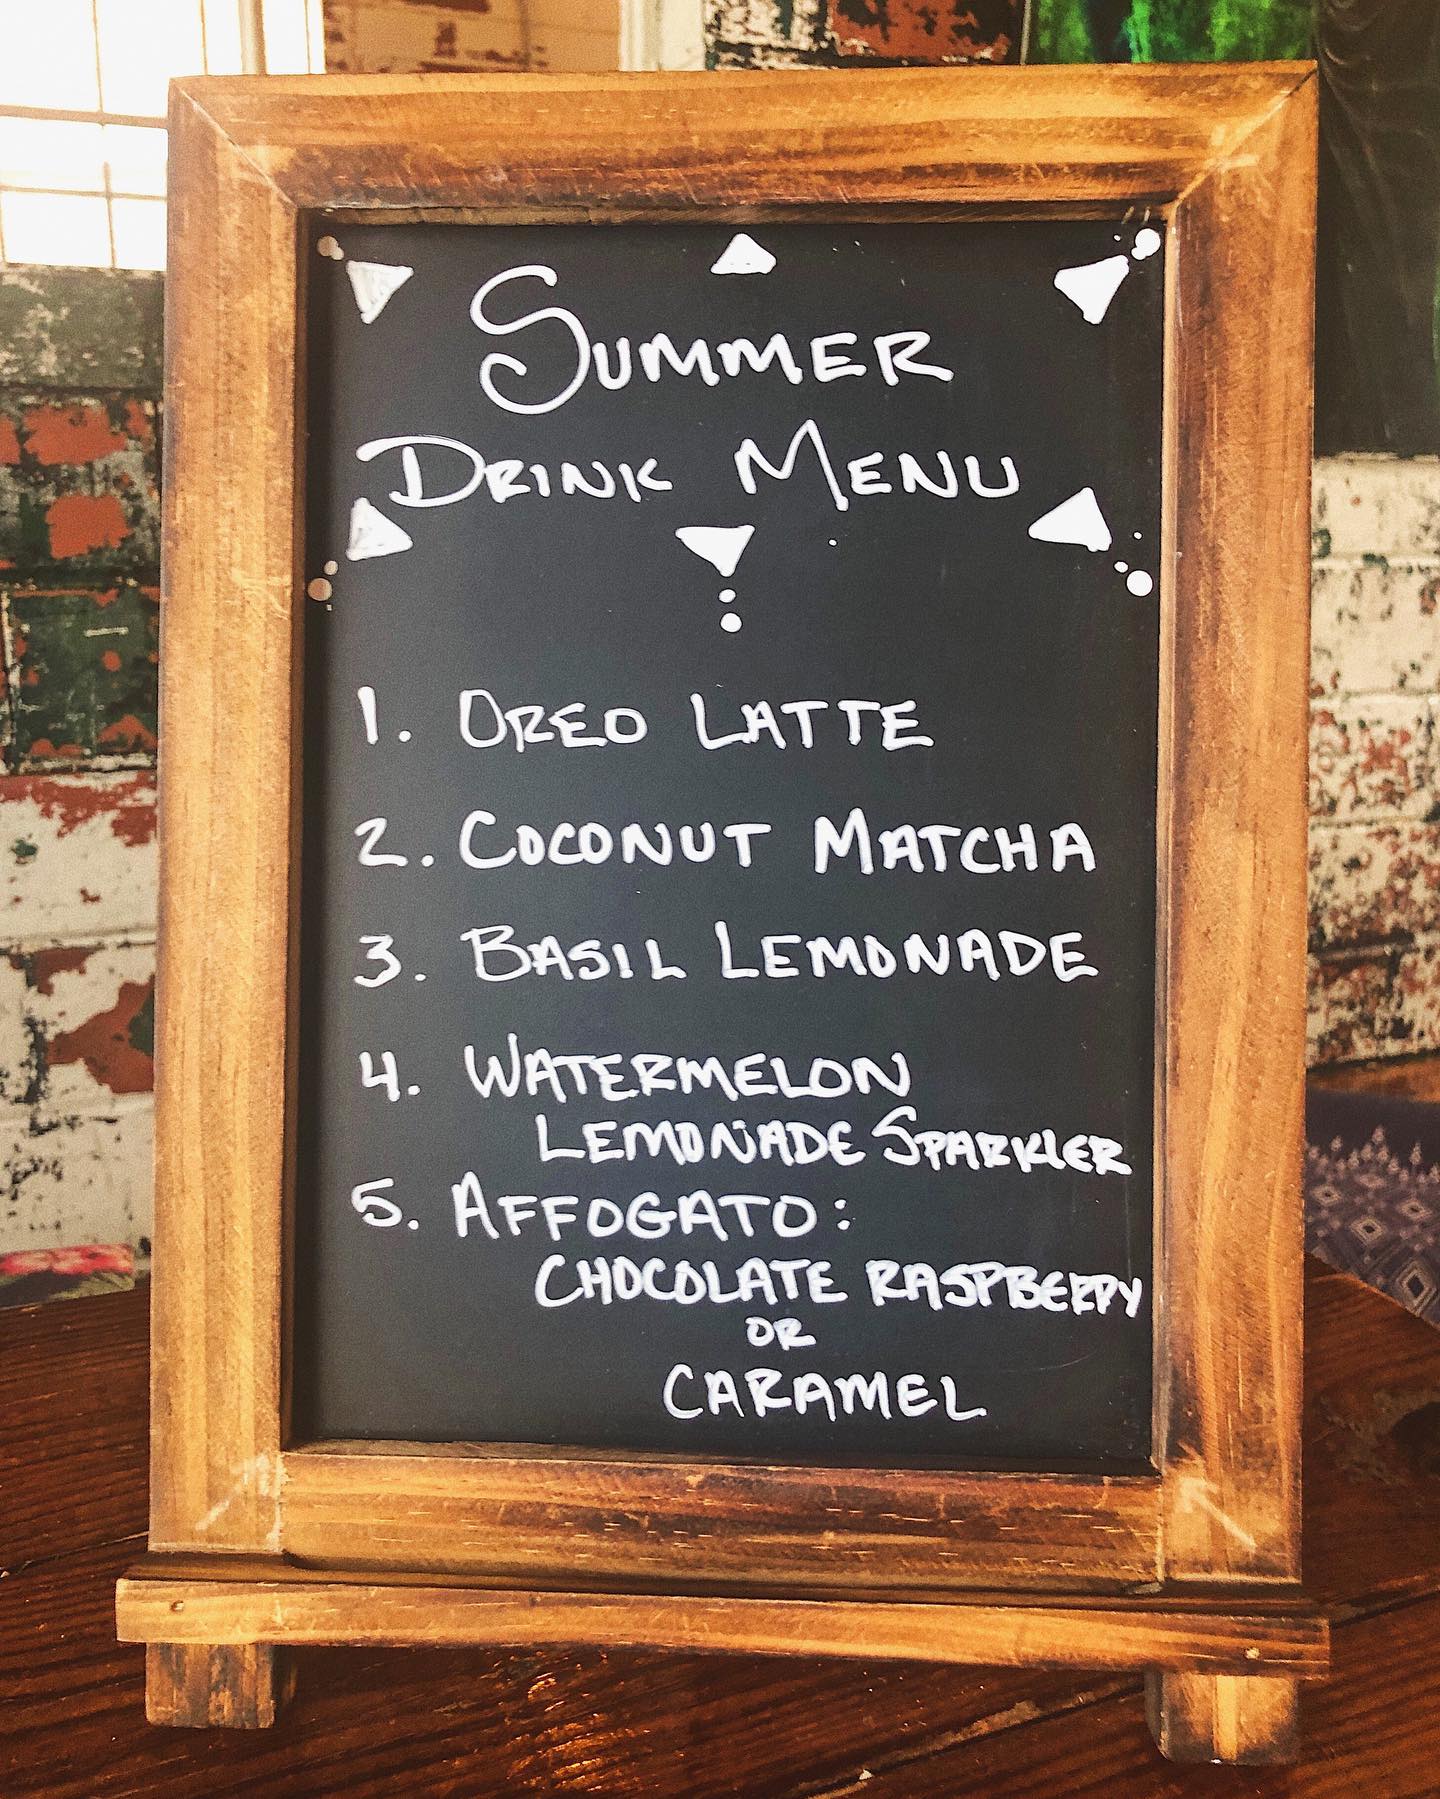 SUMMER
DRINK MENU
1. OREO LATTE
2. COCONUT MATCHA
3. BASIL LEMONADE
4. WATERMELON
LEMONADE SPARKLER
5. AFFOGATO:
CHOCOLATE RASPBERRY
OR
CARAMEL